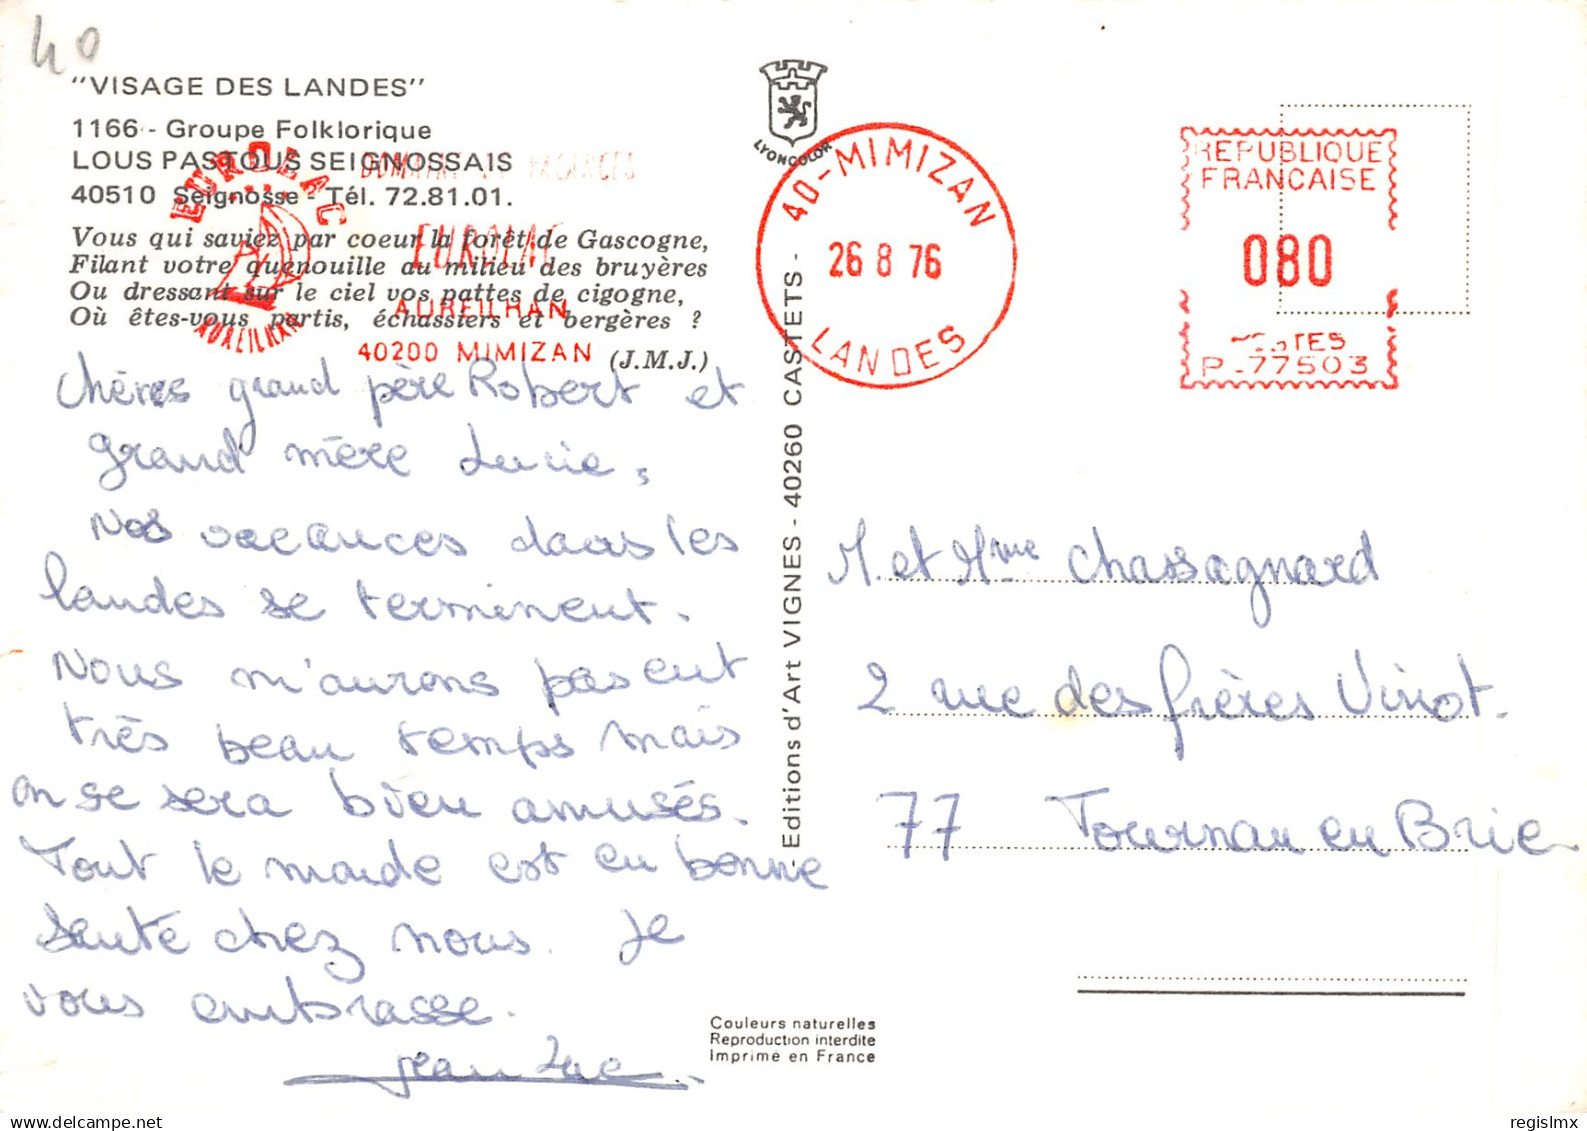 40
"VISAGE DES LANDES"
1166 - Groupe Folklorique
LOUS PASTOUS SEIGNOSSAIS
40510 Seignosse - Tél. 72.81.01.
Vous qui saviez par coeur la forêt de Gascogne,
Filant votre quenouille au milieu des bruyères
Ou dressant sur le ciel vos pattes de cigogne,
Où êtes-vous partis, échassiers et bergères ?
(J.M.J.)
EUROLAC
AUREILHAN
DOMAINE DE VACANCES
EUROLAC
AUREILHAN
40200 MIMIZAN
Chères grand père Robert et
grand mère Lucie,
Nos vacances dans les
landes se terminent.
Nous m'aurons pas eut
très beau temps mais
on se sera bien amusés.
Tout le monde est en bonne
santé chez nous. Je
vous embrasse.
Jean Luc
LYONCOLOR
- Editions d'Art VIGNES - 40260 CASTETS -
40-MIMIZAN
26 8 76
LANDES
REPUBLIQUE
FRANCAISE
080
POSTES
P.77503
M. et Mme Chassagnard
2 rue des frères Vinot.
77 Tournan en Brie
Couleurs naturelles
Reproduction interdite
Imprimé en France
regislmx